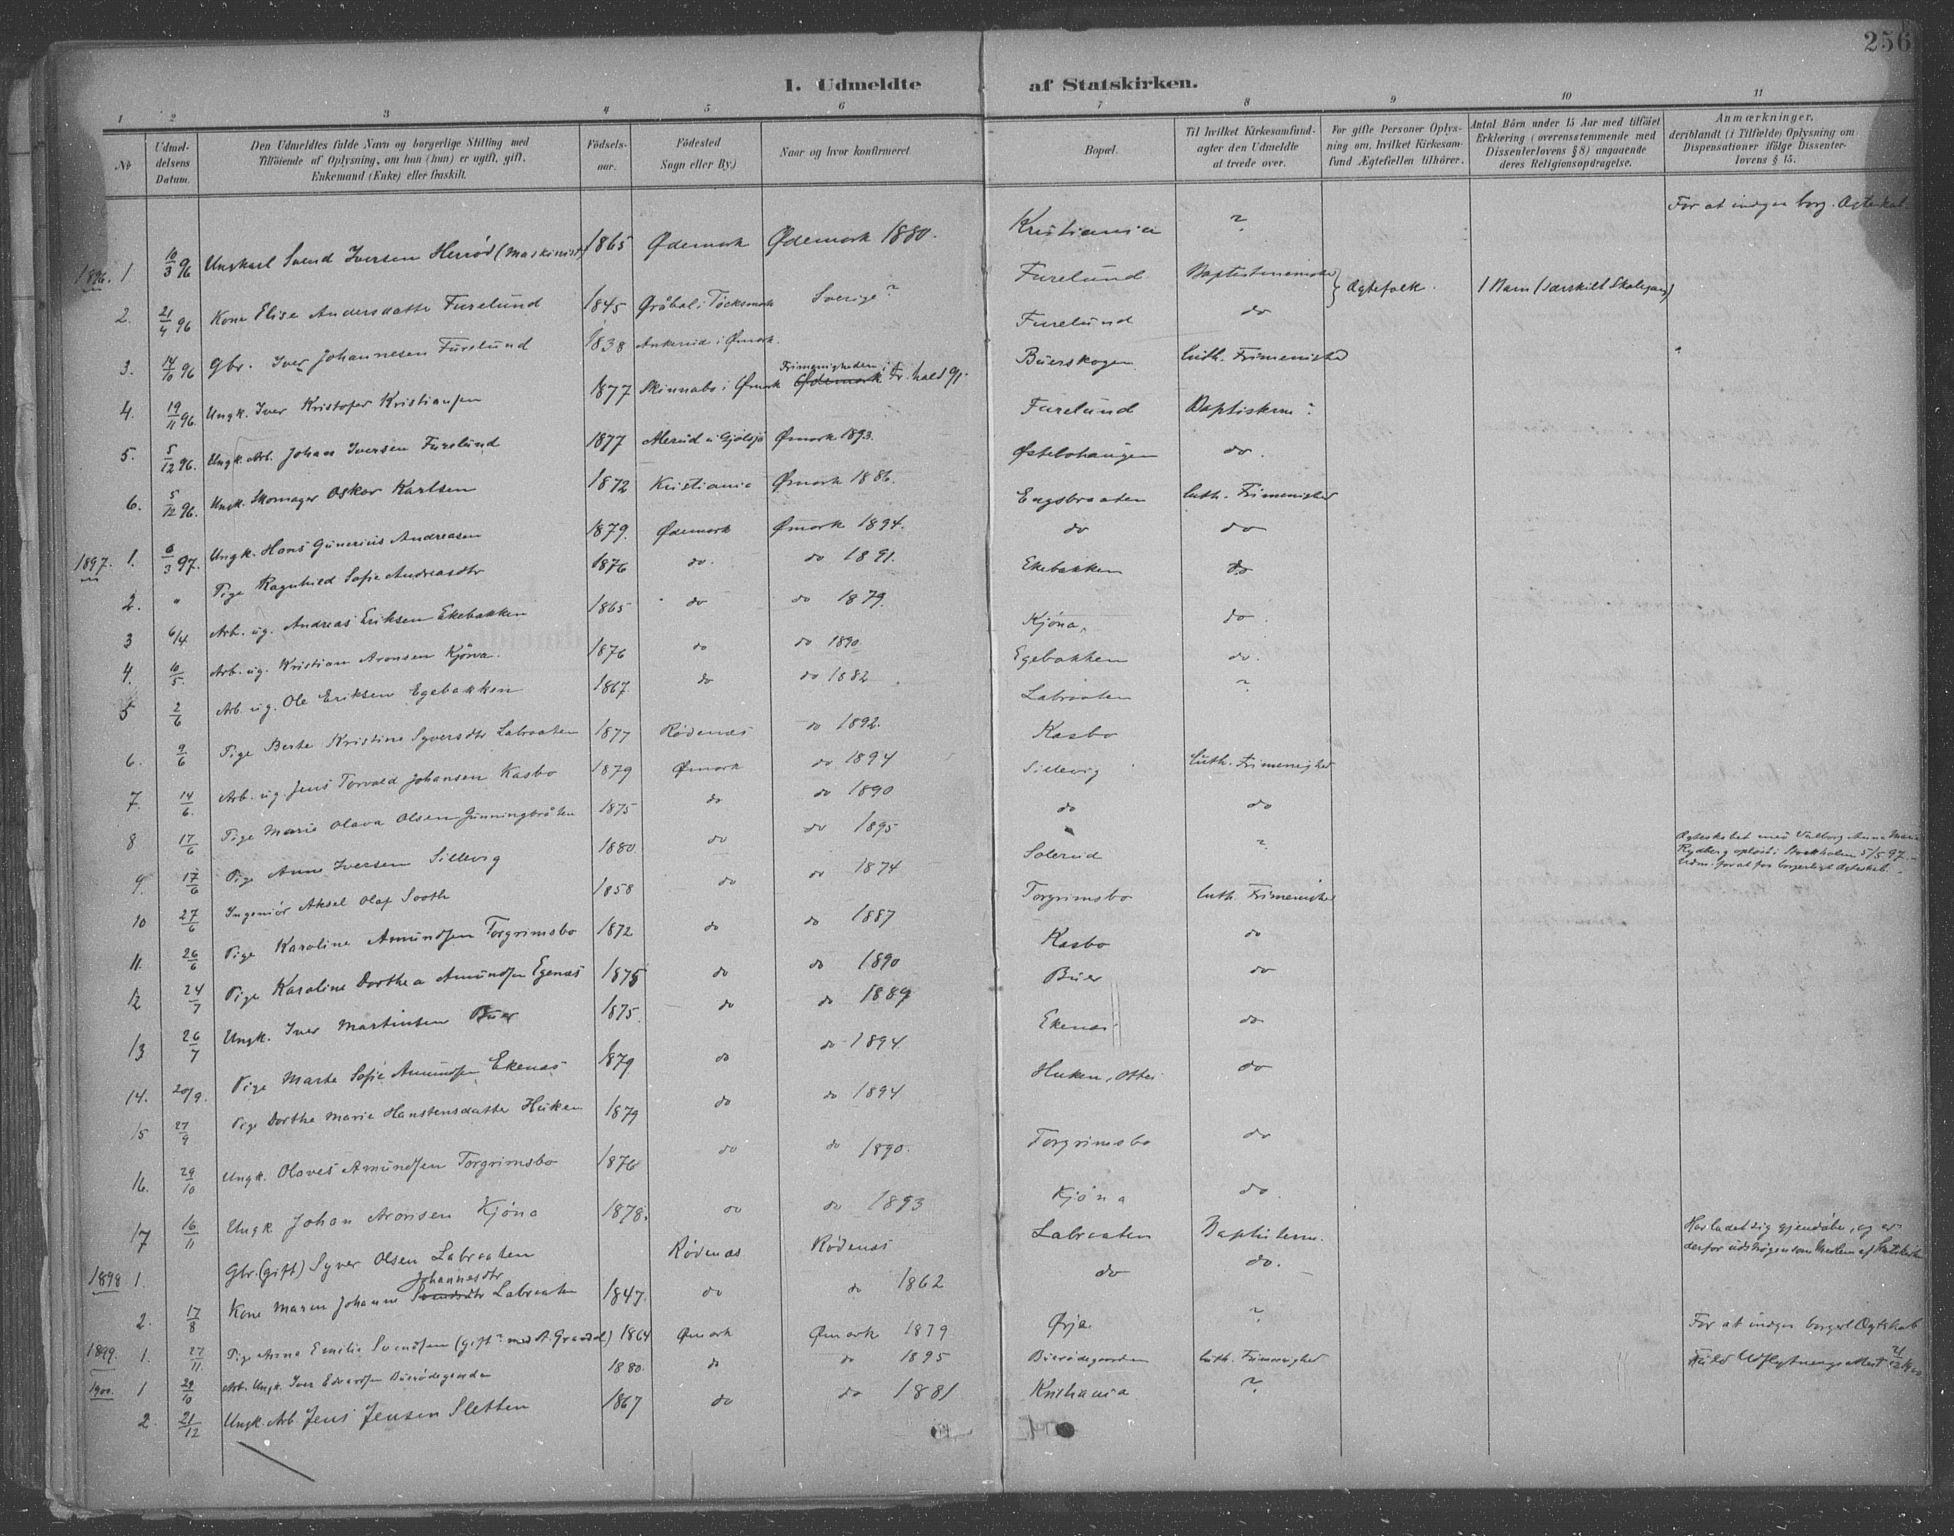 256
1. Udmeldte af Statskirken.
1 2 3 4 5 6 7 8 9 10 11
No
Udmeldelsens Datum.
Den Udmeldtes fulde Navn og borgerlige Stilling med
Tilföiende af Oplysning, om han (hun) er ugift, gift,
Enkemand (Enke) eller fraskilt.
Födselsaar.
Födested
Sogn eller By.)
Naar og hvor konfirmeret
Bopæl.
Til hvilket Kirkesamfund
agter den Udmeldte
at træde over.
For gifte Personer Oplysning
om, hvilket Kirkesamfund
Ægtefællen tilhörer.
Antal Börn under 15 Aar med tilföiet
Erklæring (overensstemmende med
Dissenterlovens § 8) angaaende
deres Religionsopdragelse.
Anmærkninger,
deriblandt (i Tilfælde) Oplysning om
Dispensationer ifölge Dissenterlovens § 15.
1896. 1. 10/3 96 Ungkarl Svend Iversen Herröd (Maskinist) 1865 Ødemark Ødemark 1880. Kristiania ? For at indgaa borg. Ægteskab
2. 21/4 96 Kone Elise Andersdatte Furelund 1845 i Töcksmark Sverige? Furelund Ægtefolk. 1 Barn
3. 14/10 96 Gbr. Iver Johannesen Furelund 1838 i Ømark. Furelund do
4. 19/11 96. Ungk. Iver Kristofer Kristiansen 1877 Skinnabo i Ømark Frimenigheden i Fr.hald 91. Buerskogen Luth. Frimenighed
5. 5/12 96. Ungk. Arb. Johan Iversen Furelund 1877 Ømark 1893. Furelund Baptisterne?
6. 5/12 96. Ungk. Skomager Oskar Karlsen 1872 Kristiania Ømark 1886. do.
1897. 1. 6/3 97. Ungk. Hans Gunerius Andreasen 1879. Ødemark Ømark 1894. Engsbraaten Luth. Frimenighed
2. " Pige Ragnhild Sofie Andreasdtr 1876 do. do 1891. do do
3 6/4 Arb. ug. Andreas Eriksen Ekebakken 1865 do do 1879. Ekebakken do
4. 10/5. Arb. ug. Kristian Aronsen Kjöna. 1876 do do 1890 Kjöna. do.
5 2/6 Arb. ug. Ole Eriksen Egebakken 1867. do do 1882 Egebakken do.
6. 9/6 Pige Berte Kristine Syversdtr Labraaten 1877 Rödenæs do 1892. Labraaten ?
7. 14/6. Arb. ug. Jens Torvald Johansen Kasbo 1879 Ømark do. 1894 Kasbo
8 17/6 Pige Marie Olava Olsen Gunningbråten 1875 do do 1890 Sillevig Luth. Frimenighed
9. 17/6 Pige Anne Iversen Sillevig 1880. do do 1895 do do
10 27/6 Ingeniör Aksel Olaf Sooth 1858 do do 1874 Solerud ? Ægteskabet med Valborg Anna Marie
Rydberg oplöst i Stockholm 5/5 97.
Udm. for at faa borgerligt Ægteskab.
11. 26/6 Pige Karoline Amundsen Torgrimsbo 1872 do do 1887 Torgrimsbo Luth. Frimenighed
12 24/7 Pige Karoline Dorthea Amundsen Egenæs 1875 do do 1890 Kasbo do
13 26/7 Ungk. Iver Martinsen Buer 1875. do do 1889 Buer do
14. 20/9. Pige Marte Sofie Amundsen Ekenæs 1879 do do 1894 Ekenæs do
15 27/9 Pige Dorthe Marie Hanstensdatte Huken 1879 do do 1894 Huken, Otter do
16. 29/10 Ungk. Olaves Amundsen Torgrimsbo 1876 do do 1890. Torgrimsbo do
17 16/11 Ungk Johan Aronsen Kjöna 1878. do do 1893 Kjöna do.
1898 1. Gbr. (gift) Syver Olsen Labraaten Rödenæs Rödenæs Labraaten Baptistern. Har ladet sig gjendöbe, og er
derfor udströgen som Medlem af Statskirken
2. 17/8 Kone Maren Johanne Johannesdtr Labraaten 1847. do do 1862 do do.
1899. 1. 27/11. Pige Anna Emilie Svendsen (gift? med A. Graadal) 1864 Ømark Ømark 1879 Ørje ? For at indgaa borgerl. Ægtskab
1900. 1 29/10 Arb. Ungk. Iver Edvardsen Bueródegaarden 1880. do do 1895 Bueródegaarden Luth. Frimenighed
2. 21/12 Ungk. Arb Jens Jensen Sletten 1867 do do 1881 Kristiania ?